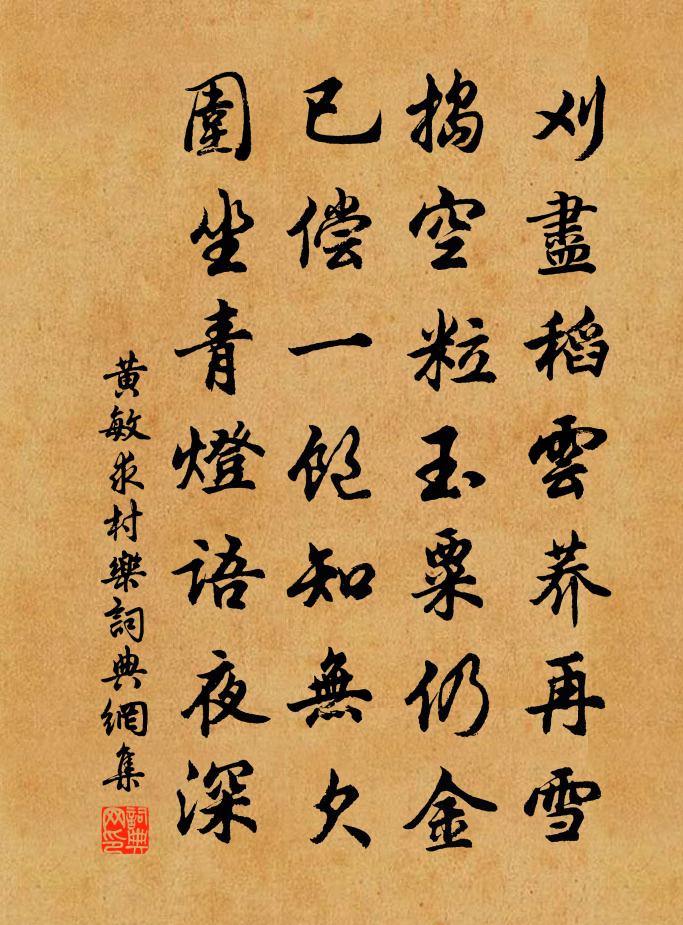 刈盡稻雲荞再雪
搗空粒玉粟仍金
已偿一飽知無欠
圍坐青燈語夜深
黄敏求村樂詞典網集
詞典网印